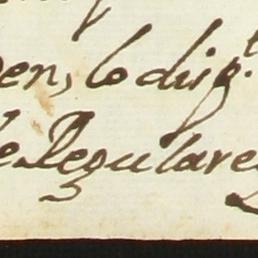 en, lo dispt.
e Regulares